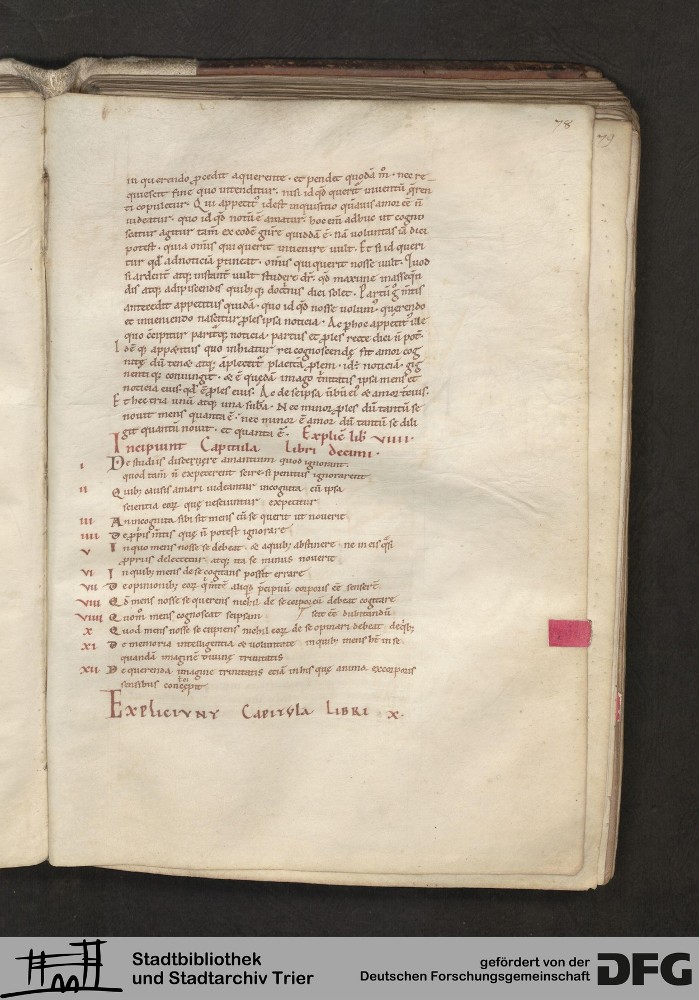 78
79
in querendo p̄cedit a querente · et pendet quodā m̄ · nec re
quiescit fine quo intenditur · nisi id qđ querit̄ inventū q̄ren
ti copuletur · Qui appetit᷒ idest inquisitio quāvis amor eē n̄
videatur · quo id qđ notū ē amatur · hoc enī adhuc ut cogno
scatur agitur tam̄ ex eodē gn̄re quiddā ē · nā voluntas iā dici
potest · quia om̄is qui querit invenire vult · Et si id queri
tur qđ ad noticiā ptineat · om̄is qui querit nosse vult · Quod
si ardent̄ atq; instant̄ vult studere dr̄ · qđ maxime in assequn̄
dis atq; adipiscendis quib; q; doctrinis dici solet · Partū g̊ m̄tis
antecedit appetitus quidā · quo id qđ nosse volum᷒ · querendo
et inveniendo nascitur p̄les ipsa noticia · Ac p hoc appetit᷒ ille
quo c̄cipitur parit̄q; noticia · partus et p̄les recte dici n̄ pot̄
Idē q; appetitus quo inhiatur rei cognoscendę fit amor cog
nitę dū tenet atq; āplectit̄ placitā p̄lem · id ē noticiā · gig
nenti q; coniungit · & ē quędā imago t̄nitatis ipsa mens et
noticia eius · qđ ē p̄les eius · Ac de se ipsa v̄bū ei᷒ & amor tcius ·
Et hęc tria unū atq; una suba · Nec minor p̄les dū tantū se
novit mens quanta ē · nec minor ē amor dū tantū se dili
git quantū novit · et quanta ē · Explic̄ lib̄ VIIII ·
Incipiunt Capitula Libri decimi ·
I De studiis discernere amantium quod ignorant
quod tam̄ n̄ expeterent scire · si penitus ignorarent
II Quib; causis amari videantur incognita · cū ipsa
scientia eorꝝ quę nesciuntur · expetitur
III An incognita sibi sit mens cū se querit ut noverit
IIII De p̄priis m̄tis quę n̄ potest ignorare
V In quo mens nosse se debeat · & a quib; abstinere · ne in eis q̄si
propriis delectetur · atq; ita se minus noverit
VI In quib; mens de se cogitans possit errare
VII De opinionib; eorꝝ
VIII Qđ mens nosse se querens nichil de se corporeū debeat cogitare
VIIII Quom̊ mens cognoscat se ipsam scit eē dubitandū
X Quod mens nosse se cupiens nichil eorꝝ de se opinari debeat · de q̄b;
XI De memoria intelligentia & voluntate · in quib; mens h̄t in se
quandā imaginē
XII De querenda imagine trinitatis etiā in his quę anima ex corporis
sensibus concepit
Expliciunt Capitula Libri X ·
Stadtbibliothek
und Stadtarchiv Trier
gefördert von der
Deutschen Forschungsgemeinschaft
DFG